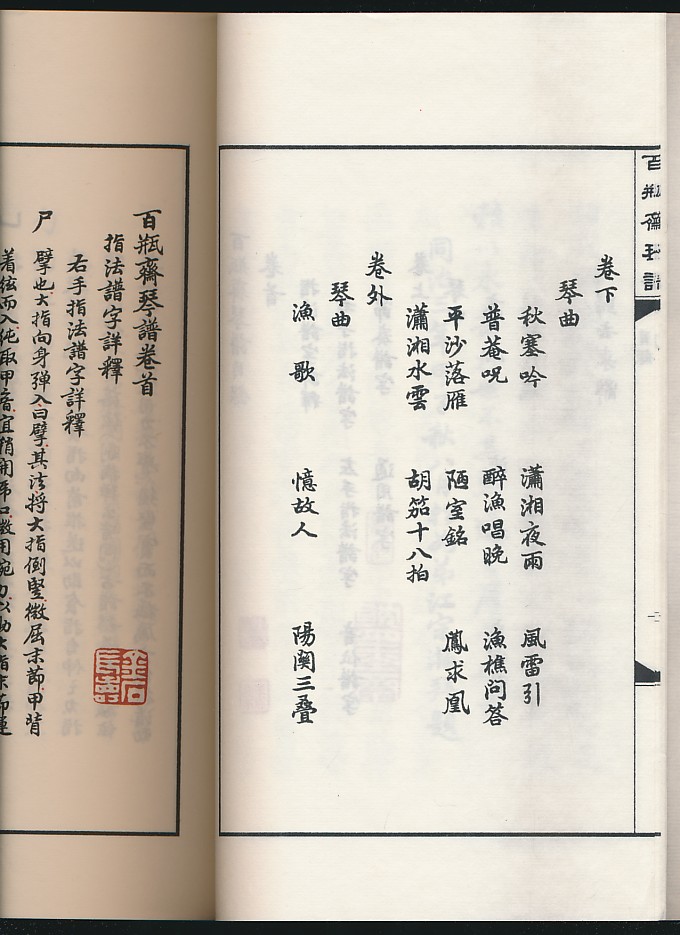 百瓶齋琴譜
卷下
琴曲
秋塞吟 瀟湘夜雨 風雷引
普菴呪 醉漁唱晚 漁樵問答
平沙落雁 陋室銘 鳳求凰
瀟湘水雲 胡笳十八拍
卷外
琴曲
漁歌 憶故人 陽関三疊
百瓶齋琴譜卷首
指法譜字詳釋
右手指法譜字詳釋
尸 擘也大指向身彈入曰擘其法將大指倒豎微屈末節甲背
着絃而入純取甲音宜稍開虎口微用腕力以助大指末節運